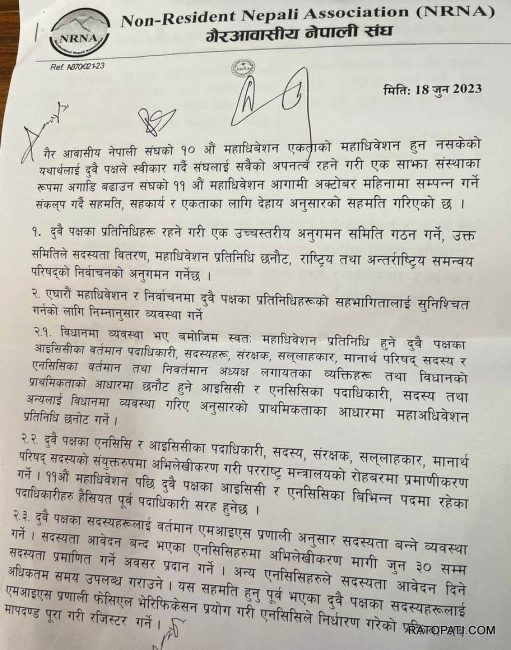 Non-Resident Nepali Association (NRNA)
गैरआवासीय नेपाली संघ
NRNA
Ref. A870/021-23
मिति: 18 जुन 2023
गैर आवासीय नेपाली संघको १० औं महाधिबेशन एकताको महाधिवेशन हुन नसकेको
यथार्थलाई दुवै पक्षले स्वीकार गर्दै संघलाई सवैको अपनत्व रहने गरी एक साझा संस्थाका
रुपमा अगाडि बढाउन संघको ११ औं महाधिवेशन आगामी अक्टोबर महिनामा सम्पन्न गर्ने
संकल्प गर्दै सहमति, सहकार्य र एकताका लागि देहाय अनुसारको सहमति गरिएको छ ।
१. दुवै पक्षका प्रतिनिधिहरू रहने गरी एक उच्चस्तरीय अनुगमन समिति गठन गर्ने, उक्त
समितिले सदस्यता वितरण, महाधिवेशन प्रतिनिधि छनौट, राष्ट्रिय तथा अन्तर्राष्ट्रिय समन्वय
परिषद्को निर्वाचनको अनुगमन गर्नेछ ।
२. एघारौं महाधिवेशन र निर्वाचनमा दुवै पक्षका प्रतिनिधिहरूको सहभागितालाई सुनिश्चित
गर्नको लागि निम्नानुसार व्यवस्था गर्ने
२.१. विधानमा व्यवस्था भए बमोजिम स्वतः महाधिवेशन प्रतिनिधि हुने दुवै पक्षका
आइसिसीका वर्तमान पदाधिकारी, सदस्यहरू, संरक्षक, सल्लाहकार, मानार्थ परिषद् सदस्य र
एनसिसिका वर्तमान तथा निवर्तमान अध्यक्ष लगायतका व्यक्तिहरू तथा विधानको
प्राथमिकताको आधारमा छनौट हुने आइसिसी र एनसिसिका पदाधिकारी, सदस्य तथा
अन्यलाई विधानमा व्यवस्था गरिए अनुसारको प्राथमिकताका आधारमा महाअधिवेशन
प्रतिनिधि छनोट गर्ने ।
२.२. दुवै पक्षका एनसिसि र आइसिसीका पदाधिकारी, सदस्य, संरक्षक, सल्लाहकार, मानार्थ
परिषद् सदस्यको संयुक्तरुपमा अभिलेखीकरण गरी परराष्ट्र मन्त्रालयको रोहबरमा प्रमाणीकरण
गर्ने । ११औं महाधिवेशन पछि दुवै पक्षका आइसिसी र एनसिसिका बिभिन्न पदमा रहेका
पदाधिकारीहरु हैसियत पूर्व पदाधिकारी सरह हुनेछ ।
२.३. दुवै पक्षका सदस्यहरूलाई वर्तमान एमआइएस प्रणाली अनुसार सदस्यता बन्ने व्यवस्था
गर्ने । सदस्यता आवेदन बन्द भएका एनसिसिहरुमा अभिलेखीकरण मागी जुन ३० सम्म
सदस्यता प्रमाणित गर्ने अवसर प्रदान गर्ने । अन्य एनसिसिहरुले सदस्यता आवेदन दिने
अधिकतम समय उपलब्ध गराउने । यस सहमति हुनु पूर्व भएका दुवै पक्षका सदस्यहरूलाई
एमआइएस प्रणाली फेसिएल भेरिफिकेसन प्रयोग गरी एनसिसिले निर्धारण गरेको
मापदण्ड पूरा गरी रजिस्टर गर्ने ।
RATOPATI.COM